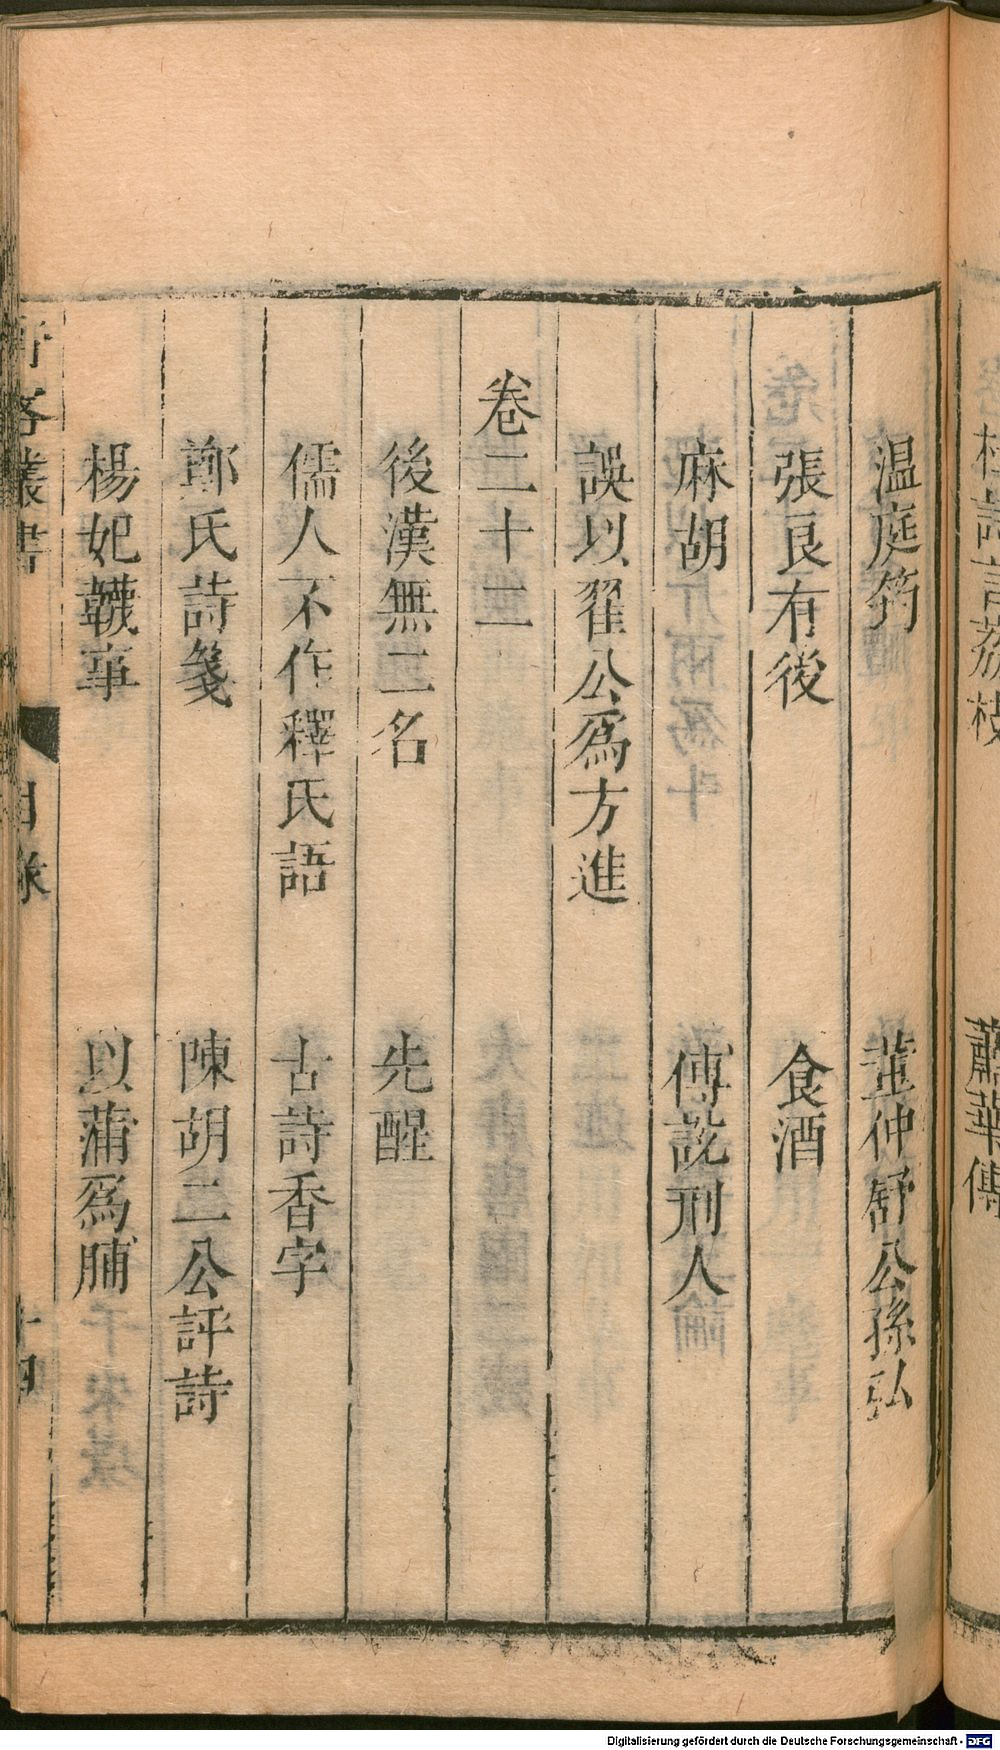 温庭筠 董仲舒公孫弘
張良有後 食酒
麻胡 傅説刑人
誤以翟公爲方進
卷二十二
後漢無二名 先醒
儒人不作釋氏語 古詩香字
鄭氏詩箋 陳胡二公評詩
楊妃韈事 以蒲爲脯
叢書 目錄
Digitalisierung gefördert durch die Deutsche Forschungsgemeinschaft - DFG